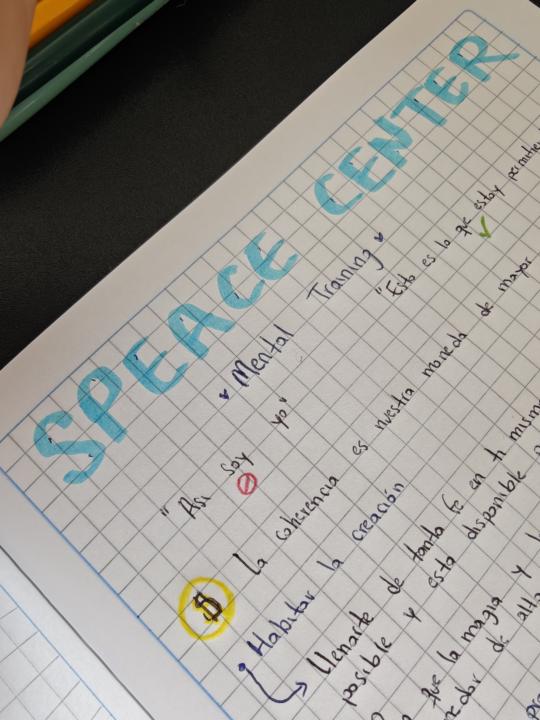 SPEACE CENTER
"Mental Training"
"Así soy yo"
"Esto es lo que estoy
$ La coherencia es nuestra moneda de mayor
• Habitar la creación
Llenarte de tanta fe en ti mismo
posible y está disponible
que la magia y
de alta